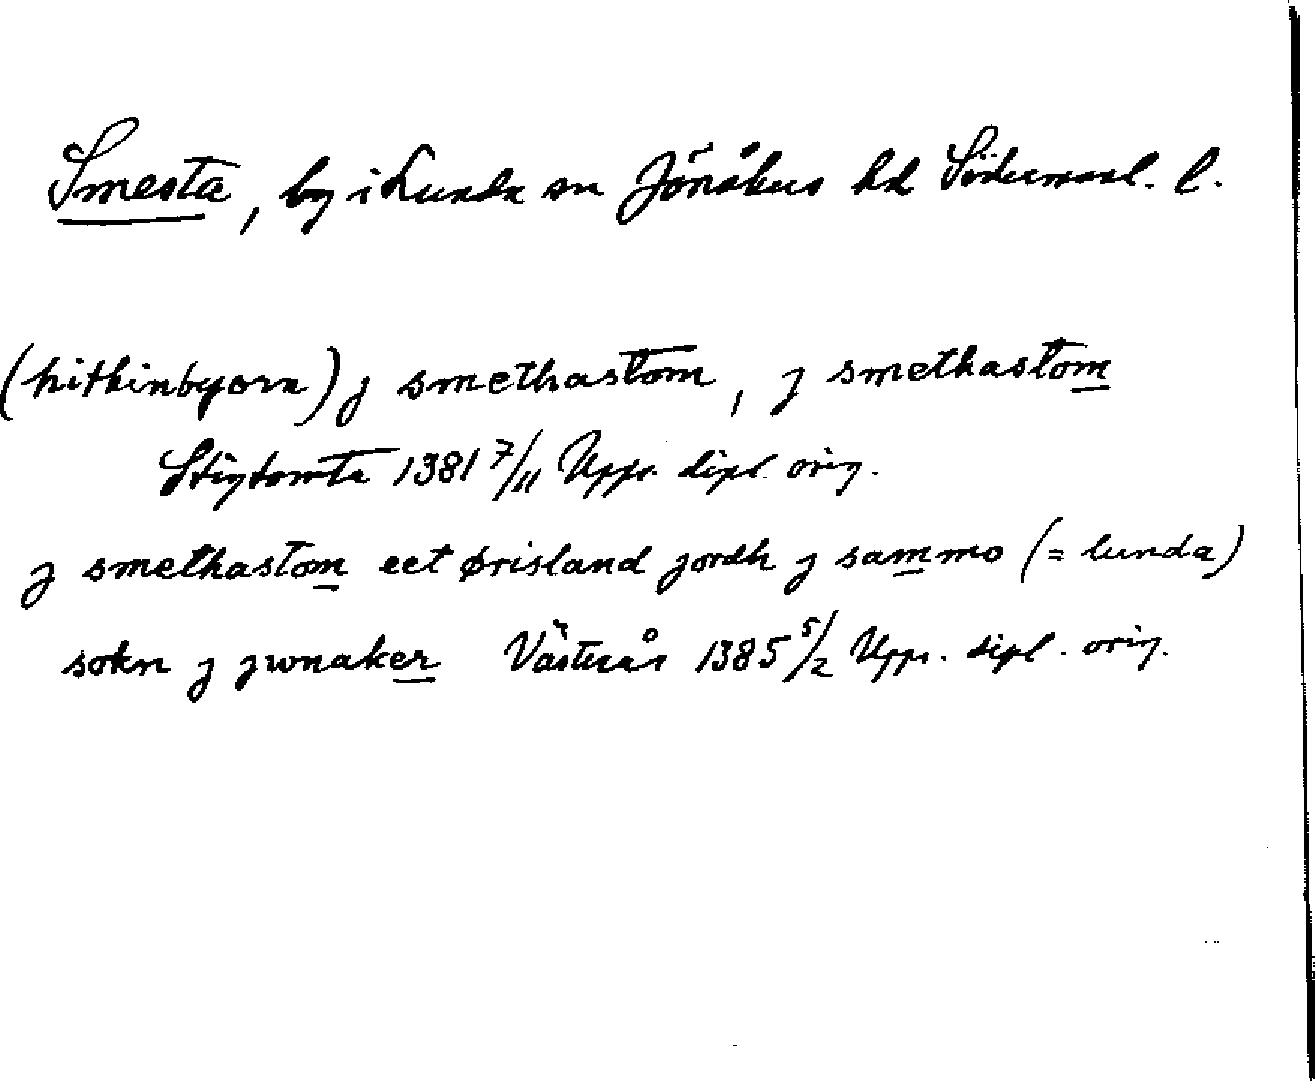 Smesta, by i Lunda sn Jönåkers hd Södermanl. l.
(hithinbyorn) j smethastom, j smethastom
Stigtomta 1381 7/11 Upps. dipl. orig.
j smethastom eet ørisland jordh j sammo (= lunda)
sokn j jwnaker Västerås 1385 5/2 Upps. dipl. orig.